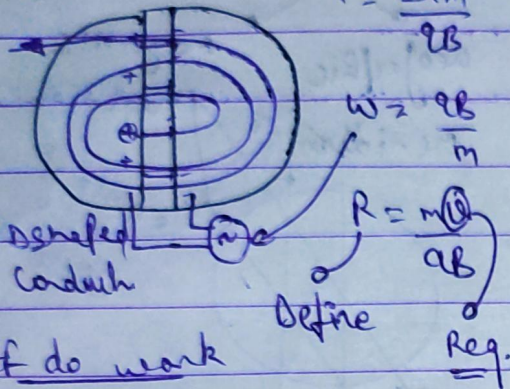 qB
W = qB
m
+
⊕
+
~
R = mv
qB
Dshaped
Conduch
Define
Req.
f do work